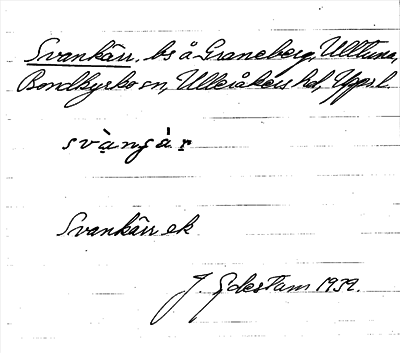 Svankärr. bs å Graneberg, Ulltuna,
Bondkyrko sn, Ulleråkers hd, Upps. l.
svàngár
Svankärr ek
J. Edestam 1939.